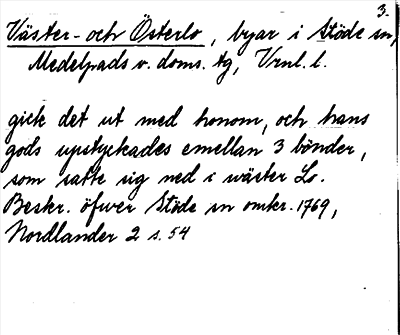 3.
Väster- och Österlo, byar i Stöde sn,
Medelpads v. doms. tg, Vrnl. l.
gick det ut med honom, och hans
gods upstyckades emellan 3 bönder,
som satte sig ned i wäster Lo.
Beskr. öfwer Stöde sn omkr. 1769,
Nordlander 2 s. 54